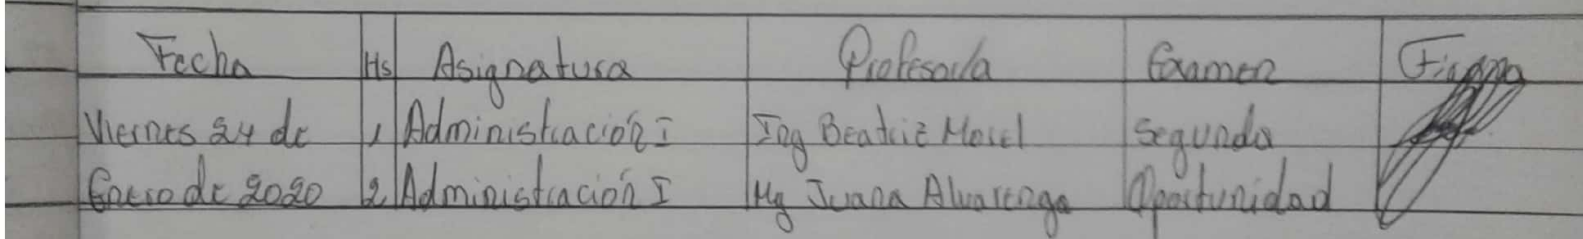 Fecha Hs Asignatura Profesor/a Examen Firma
Viernes 24 de 1 Administración I Ing Beatriz Morel Segunda
Enero de 2020 2 Administración I Mg Juana Alvarenga Oportunidad